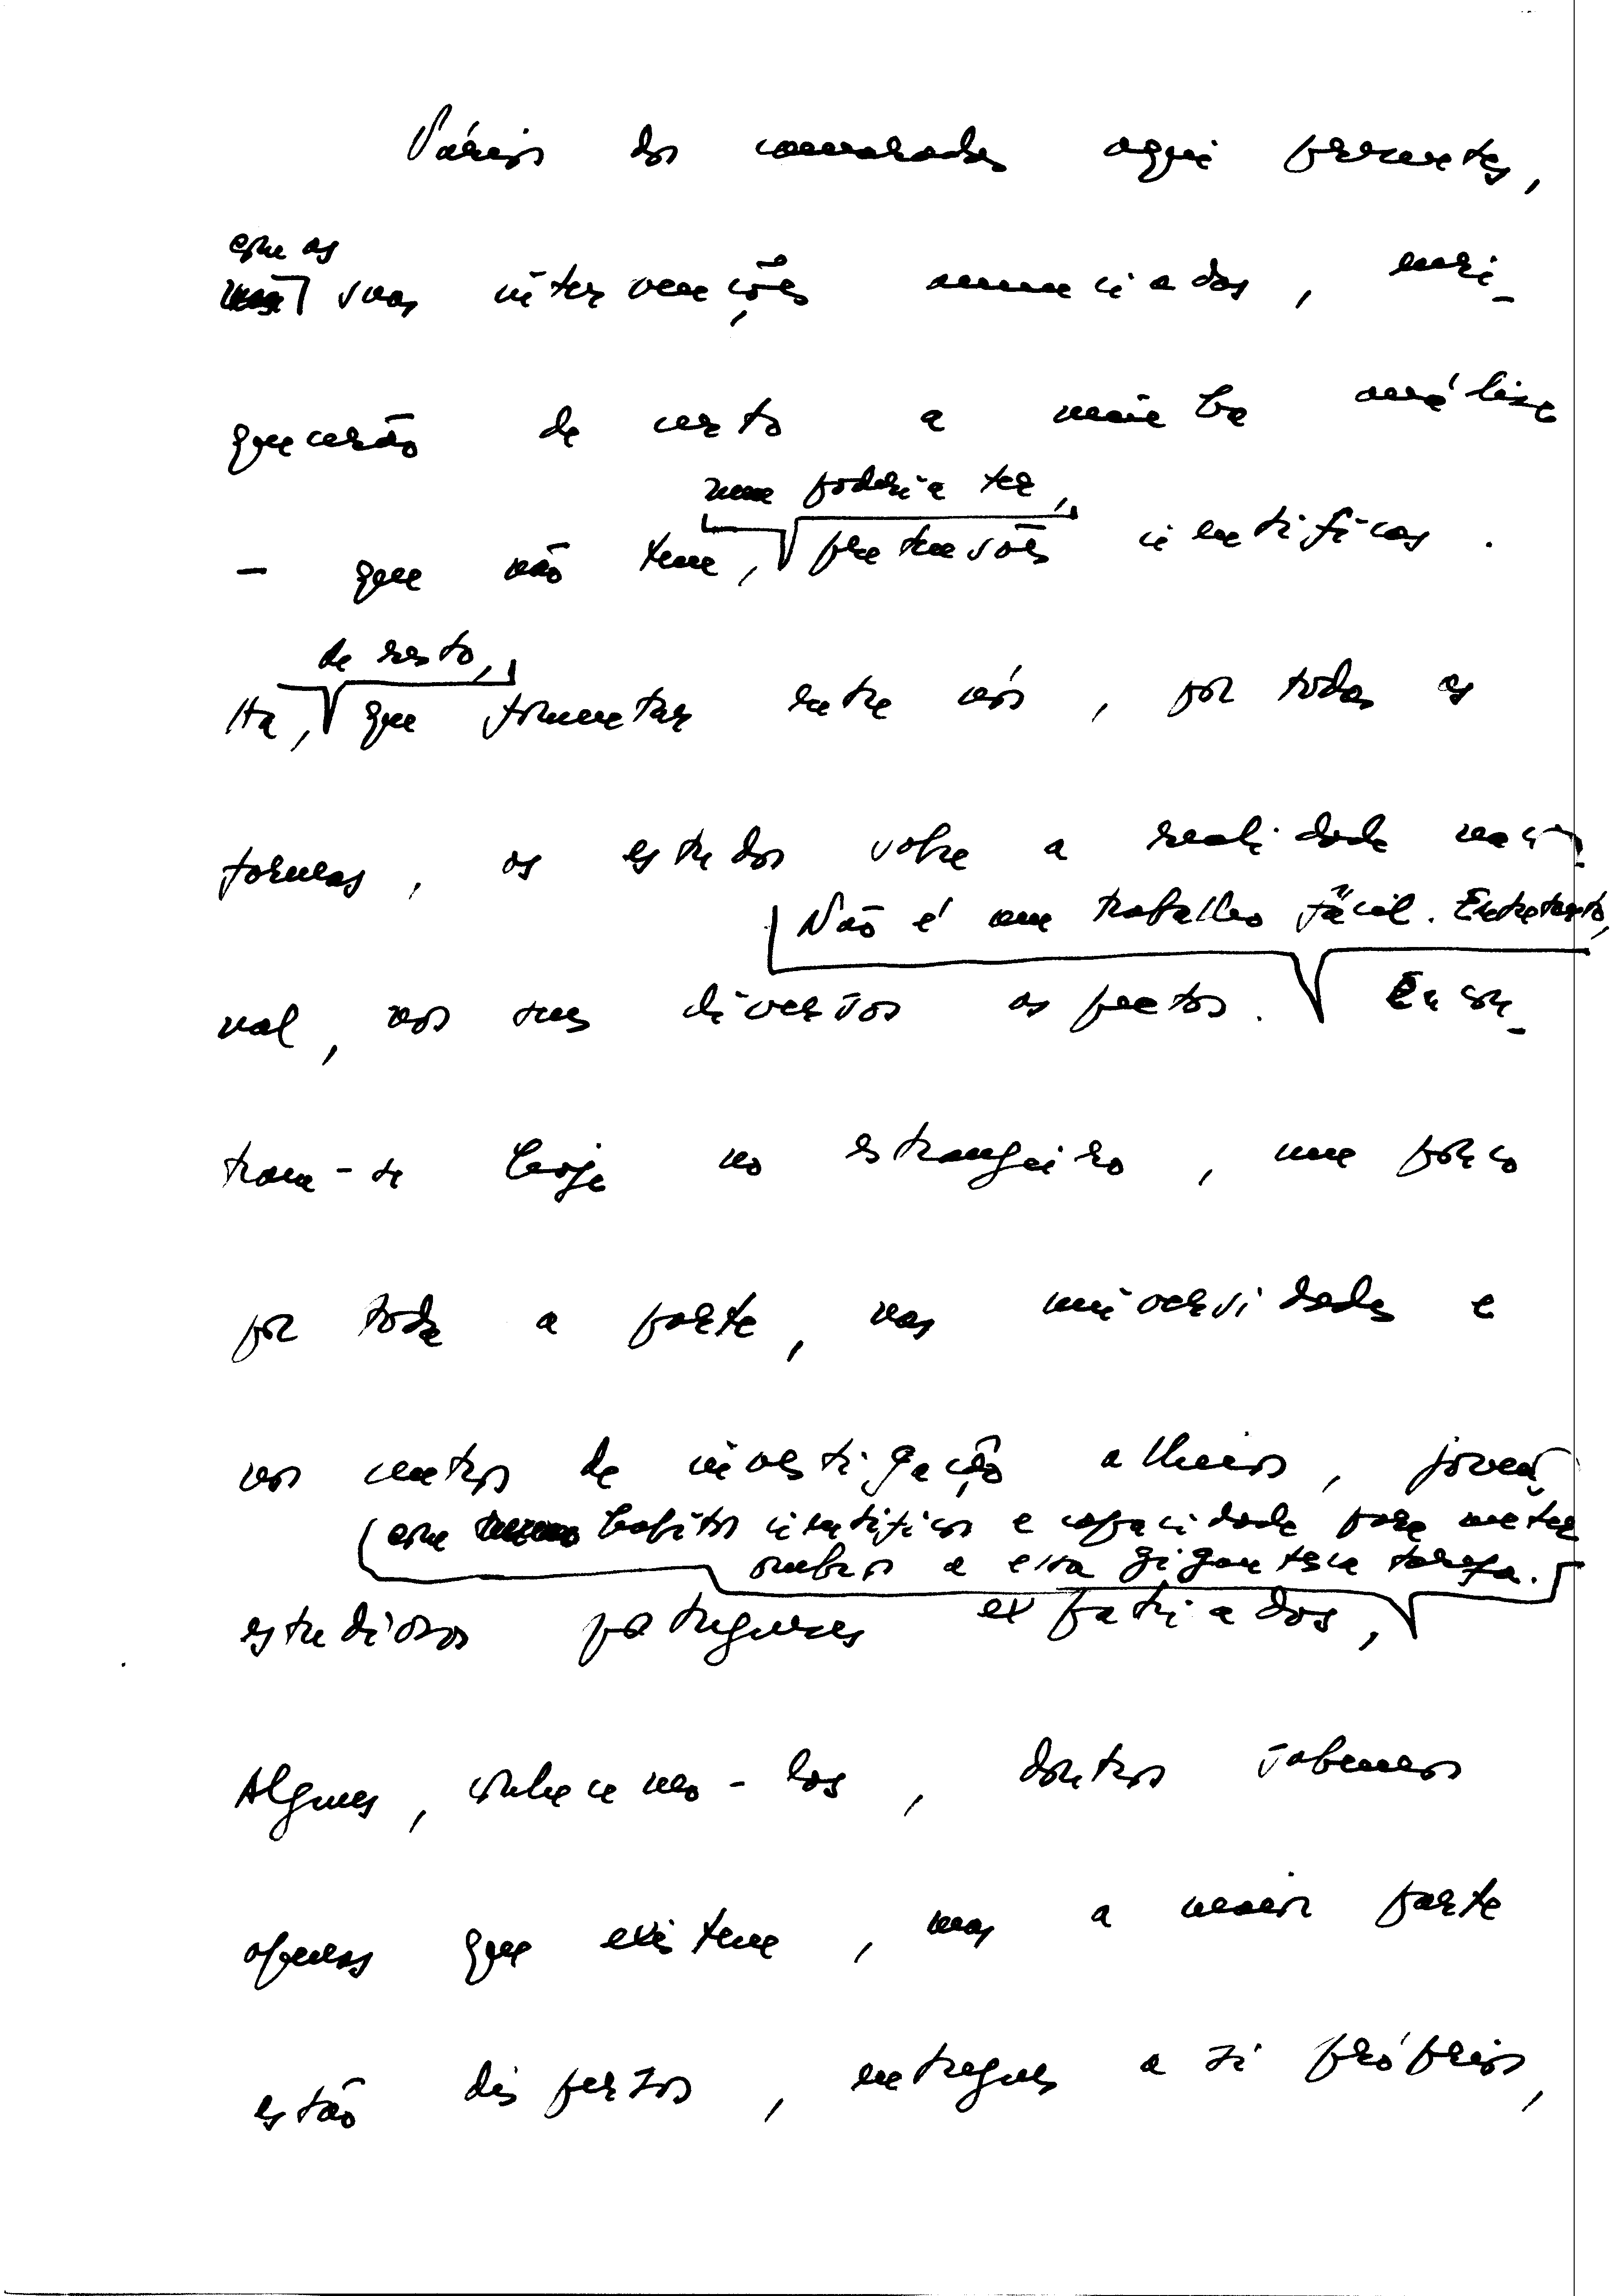 Vários dos camaradas aqui presentes,
com as
suas intervenções anunciadas, enri-
quecerão de certo a minha análise
nem poderia ter,
– que não tem, pretensões científicas.
de resto,
Há, que fomentar entre nós, por todas as
formas, os estudos sobre a realidade nacio-
Não é um trabalho fácil. Entretanto,
nal, nos seus diversos aspectos. Encon-
tram-se hoje no estrangeiro, um pouco
por toda a parte, nas universidades e
nos centros de investigação alheios, jovens
com hábitos científicos e capacidade para meter
ombros a essa gigantesca tarefa.
estudiosos portugueses expatriados,
Alguns, conhecemo-los, doutros sabemos
apenas que existem, mas a maior parte
estão dispersos, entregues a si próprios,